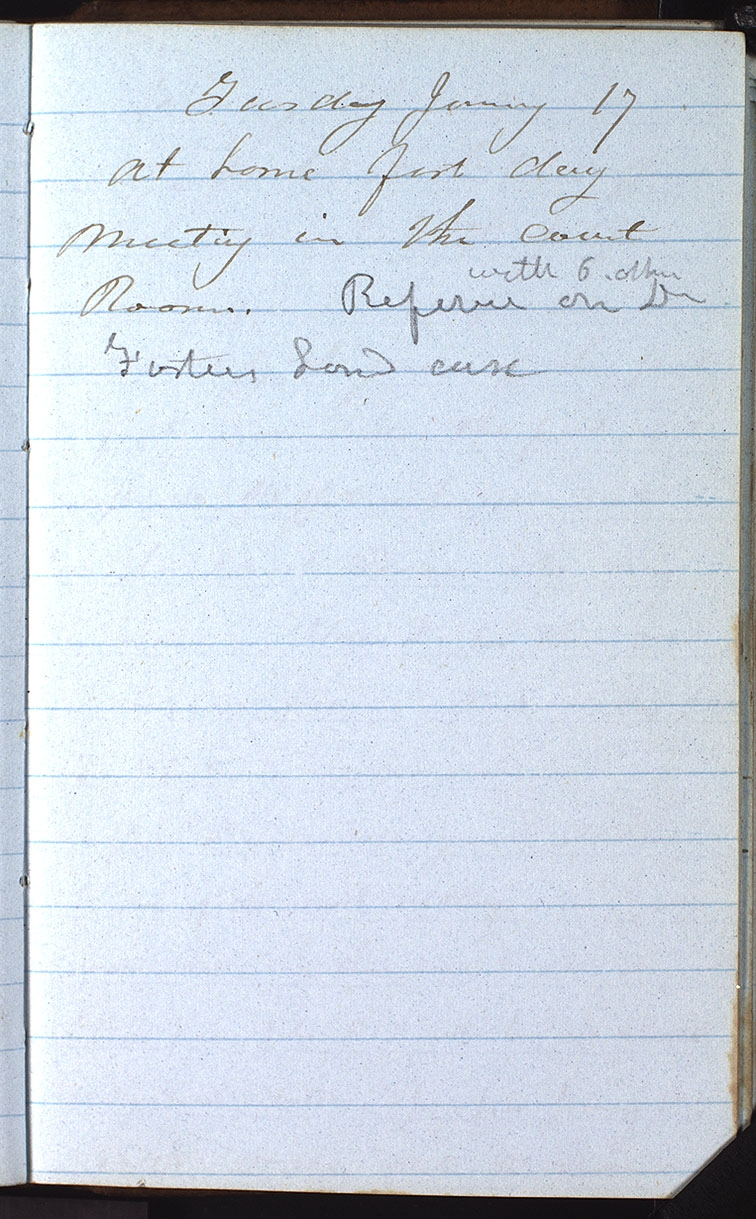 Tuesday Janury 17
at home fast day
Meeting in the Court
with 6 other
Room. Referee on Dr
Fosters Land case